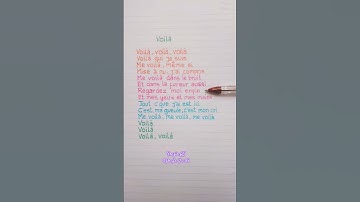 Voilà
Voilà, voilà, voilà
Voilà qui je suis
Me voilà, même si
Mise à nu, j'ai
Me voilà dans le bruit
Et dans la fureur aussi
Regardez moi enfin
Et mes yeux et mes mains
Tout c'que j'ai est ici
C'est ma gueule, c'est mon cri
Me voilà, me voilà, me voilà
Voilà
Voilà
Voilà, voilà